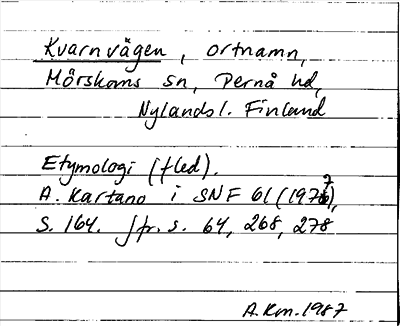 Kvarnvägen, ortnamn,
Mörskoms sn, Pernå hd,
Nylands l. Finland
Etymologi (fled).
A. Kartano i SNF 61 (1977),
S. 164. Jfr. s. 64, 268, 278
A.Km. 1987